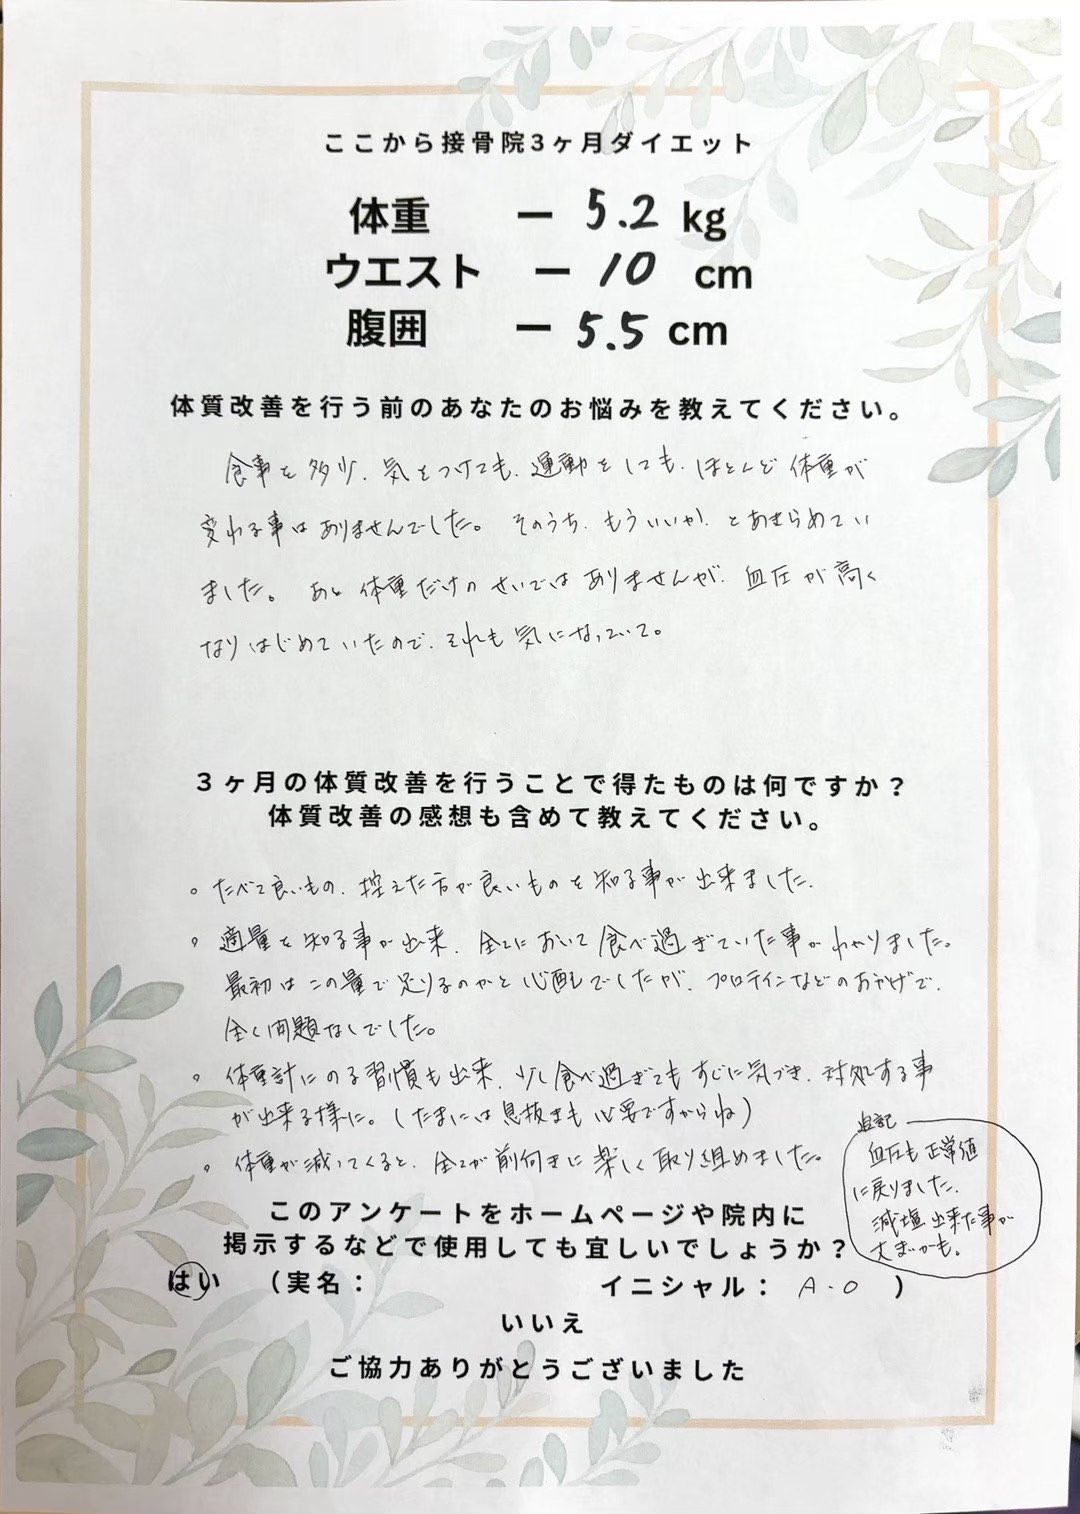 ここから接骨院3ヶ月ダイエット
体重 ー 5.2 kg
ウエスト ー 10 cm
腹囲 ー 5.5 cm
体質改善を行う前のあなたのお悩みを教えてください。
食事を多少、気をつけても、運動をしても、ほとんど体重が
変わる事はありませんでした。そのうち、もういいか、とあきらめてい
ました。あと体重だけのせいではありませんが、血圧が高く
なりはじめていたので、それも気になっていて。
3ヶ月の体質改善を行うことで得たものは何ですか?
体質改善の感想も含めて教えてください。
。たべて良いもの、控えた方が良いものを知る事が出来ました。
。適量を知る事が出来、全てにおいて食べ過ぎていた事がわかりました。
最初はこの量で足りるのかと心配でしたが、プロテインなどのおかげで、
全く問題なしでした。
。体重計にのる習慣も出来、少し食べ過ぎてもすぐに気づき、対処する事
が出来る様に。(たまには息抜きも必要ですからね)
。体重が減ってくると、全てが前向きに楽しく取り組めました。
追記
血圧も正常値
に戻りました。
減塩出来た事が
大きいかも。
このアンケートをホームページや院内に
掲示するなどで使用しても宜しいでしょうか?
はい (実名: イニシャル: A.O )
いいえ
ご協力ありがとうございました